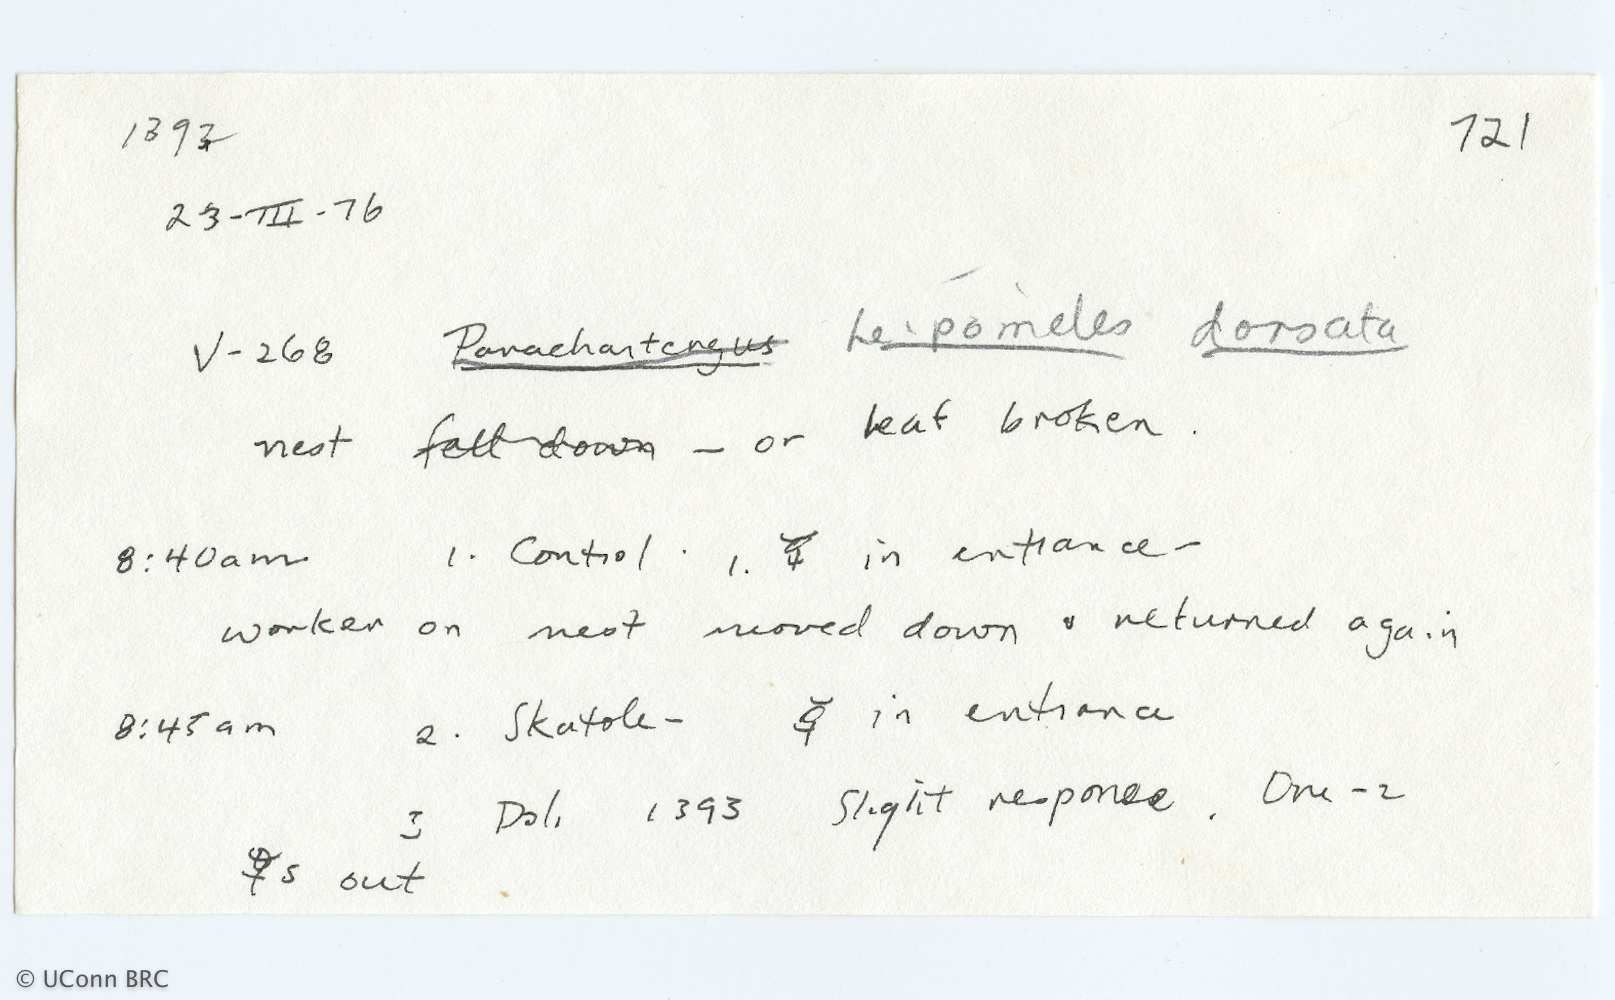 1393 721
23-III-76
V-268 Parachartergus Leipomeles dorsata
nest fell down - or leaf broken.
8:40am 1. Control. 1. ☿ in entrance-
worker on nest moved down & returned again
8:45am 2. Skatole- ☿ in entrance
3 Dol. 1393 Slight response. One-2
☿s out
© UConn BRC